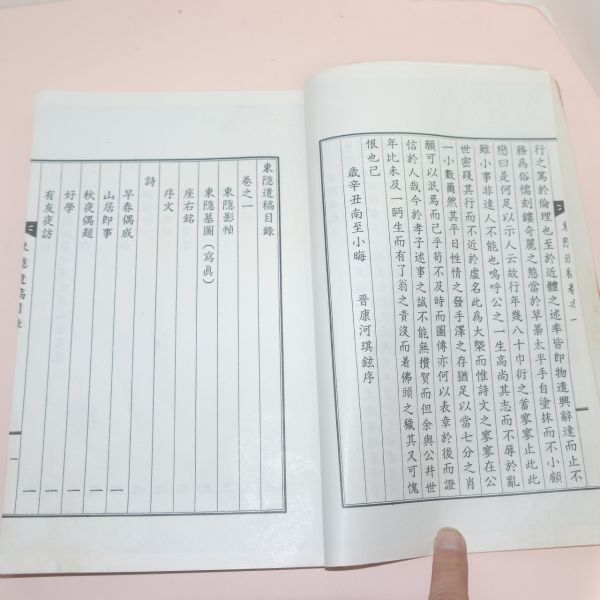 行之篤於倫理也至於近體之述率皆即物遺興辭達而止不
務爲俗儒刻鏤奇麗之態當於草藁太半手自塗抹而不小顧
戀曰是何足以示人云故行年幾八十巾衍之蓄寥寥止此此
雖小事非達人不能也嗚呼公之一生高尚其志而不辱於亂
世密踐其行而不近於虛名此爲大槩而惟詩文之寥寥在公
一小數爾然其平日性情之發手澤之存猶足以當七分之肖
願可以泯焉而已乎苟不及時而圖傳亦何以表章於後而證
信於人哉今於孝子述事之誠不能無攢賀而但余與公幷世
年比未及一眄生而有了翁之責沒而着佛頭之穢其又可愧
恨也已
歲辛丑南至小晦 晋康河琪鉉序
東隱遺稿卷之一
東隱遺稿目錄
卷之一
東隱影幀
東隱墓圖(寫眞)
座右銘
序文
詩
早春偶成 一
山居即事 一
秋夜偶題 一
好學 一
有友夜訪 一
東隱遺稿目錄 一